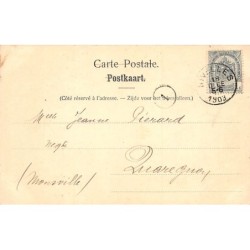 Carte Postale.
Postkaart.
(Côté réservé à l'adresse. - Zijde voor het
NIVELLES
1903
Mlle Jeanne Piérard
negte
Quaregnon
(Monsville)